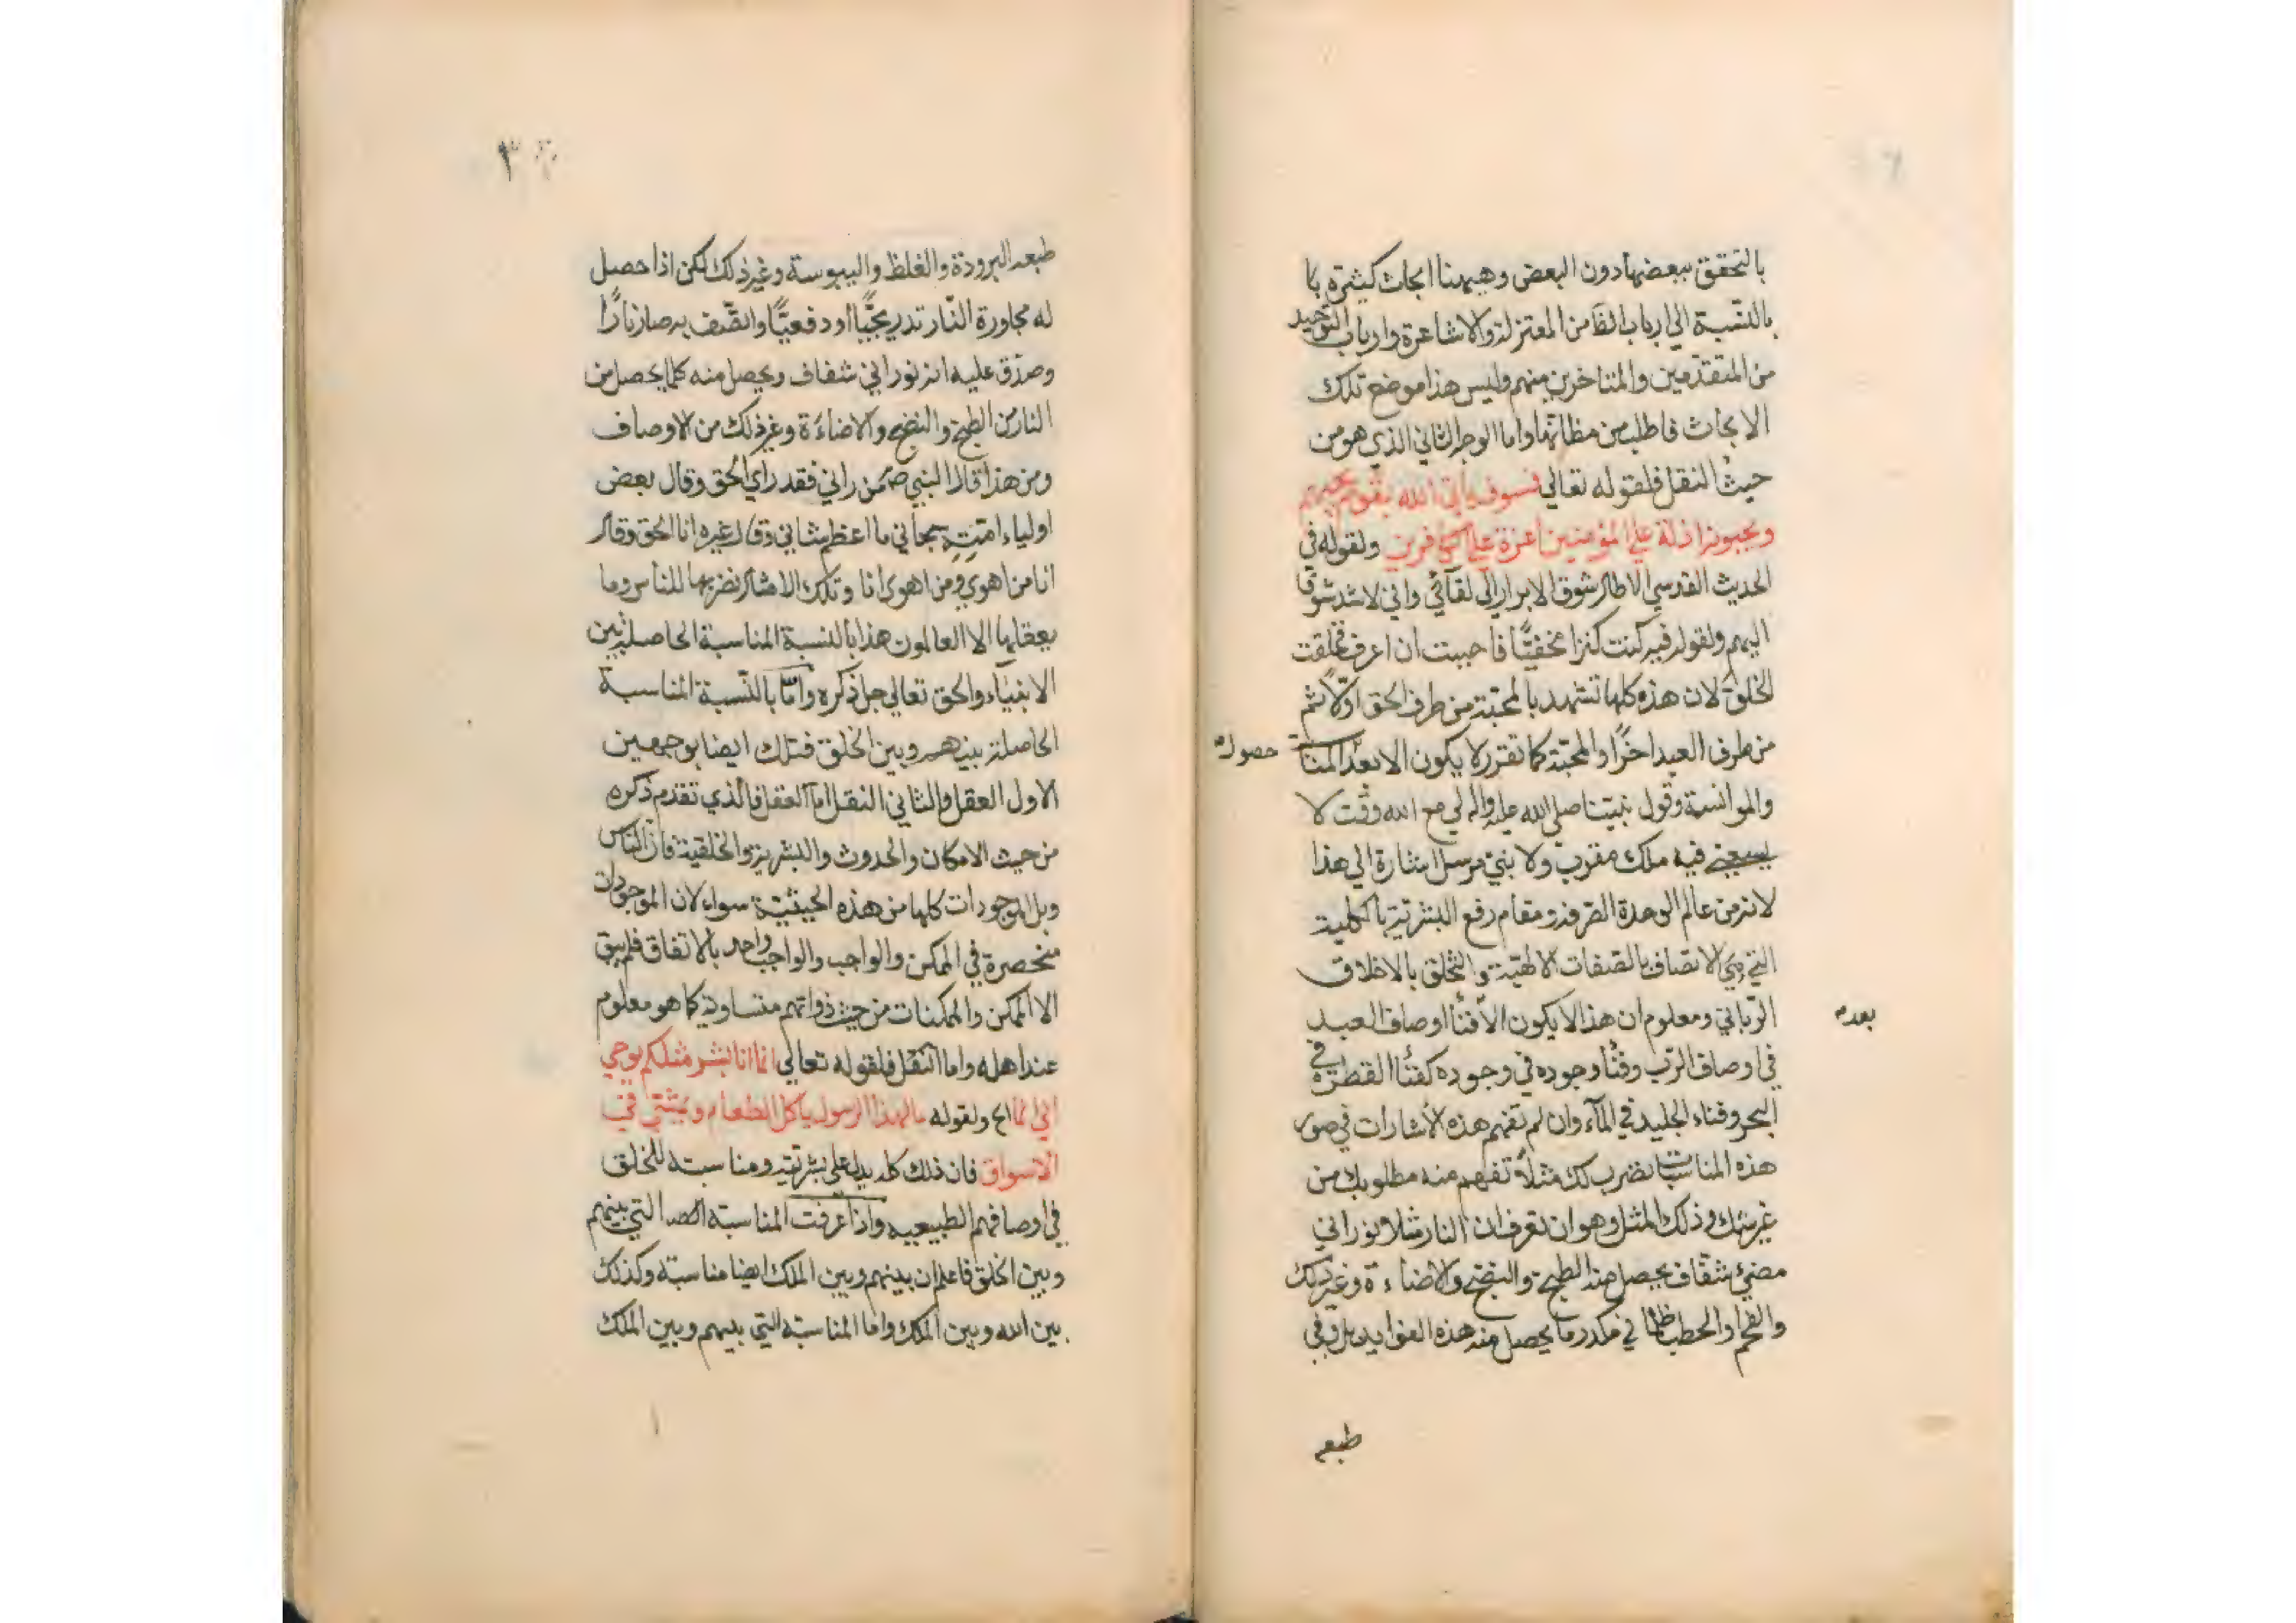 بالتحقق ببعضها دون البعض وهيهنا ابحاث كثيرة با
بالنسبة الي ارباب الظا من المعتزلة والاشاعرة وارباب التوحيد
من المتقدمين والمتاخرين منهم وليس هذا موضع تلك
الابحاث فاطلب من مظانها واما الوجه الثاني الذي هو من
حيث النقل فلقوله تعالي فسوف يأتي الله بقوم يحبهم
ويحبونه اذلة علي المؤمنين اعزة علي الكافرين ولقوله في
الحديث القدسي الا طال شوق الابرار الي لقآئي واني لاشد شوقا
اليهم ولقوله فيه كنت كنزا مخفيًّا فاحببت ان اعرف فخلقت
الخلق لان هذه كلها تشهد بالمحبّة من طرف الحق اوّلا ثم
من طرف العبد اخرًا والمحبّة كما تقرر لا يكون الا بعد المنا
حصول
والموانسة وقول نبيّنا صلي الله عليه واله لي مع الله وقت لا
يسعني فيه ملك مقرب ولا نبي مرسل اشارة الي هذا
لانه من عالم الوحدة الصرفة ومقام رفع البشرية بالكلية
التي هي الاتصاف بالصفات الالهيّة والتخلق بالاخلاق
الرّباني ومعلوم ان هذا لا يكون الا فنأ اوصاف العبد
بعدم
في اوصاف الرّب وفنأ وجوده في وجوده كفنأ القطرة في
البحر وفناء الجليد في المآء وان لم تفهم هذه الاشارات في صور
هذه المناسبات نضرب لك مثلاً تفهم منه مطلوبك من
غير شك وذلك المثل وهو ان تعرف ان النار مثلا نوراني
مضئ شفاف يحصل منه الطبخ والنضج والاضاءة وغير ذلك
والفحم والحطب ظلماني مكدر ما يحصل منه هذه الفوايد بل وفي
طبعه
٣
طبعه البرودة والغلظ واليبوسة وغير ذلك لكن اذا حصل
له مجاورة النّار تدريجيًّا او دفعيًّا واتّصف به صار نارًا
وصدق عليه انه نوراني شفاف ويحصل منه كلما يحصل من
النار من الطبخ والنضج والاضاءة وغير ذلك من الاوصاف
ومن هذا قال النبي ص من راني فقد راي الحق وقال بعض
اولياء امته سبحاني ما اعظم شاني وقال غيره انا الحق وقال
انا من اهوي ومن اهوي انا وتلك الامثال نضربها للناس وما
يعقلها الا العالمون هذا بالنسبة المناسبة الحاصلة بين
الانبيآء والحق تعالي جل ذكره وامّا بالنّسبة المناسبة
الحاصلة بينهم وبين الخلق فتلك ايضا بوجهين
الاول العقل والثاني النقل اما العقل فالذي تقدم ذكره
من حيث الامكان والحدوث والبشرية والخلقية فان الناس
وبل الموجودات كلها من هذه الحيثية سواء لان الموجودات
منحصرة في الممكن والواجب والواجب واحد بالاتفاق فلم يبق
الا الممكن والممكنات من حيث ذواتهم متساوية كما هو معلوم
عند اهله واما النقل فلقوله تعالي انما انا بشر مثلكم يوحي
الي انما الخ ولقوله مالهذا الرسول ياكل الطعام ويمشي في
الاسواق فان ذلك كله يدل علي بشريته ومناسبته للخلق
في اوصافهم الطبيعيه واذا عرفت المناسبته التي بينهم
وبين الخلق فاعلم ان بينهم وبين الملك ايضا مناسبته وكذلك
بين الله وبين الملك واما المناسبته التي بينهم وبين الملك